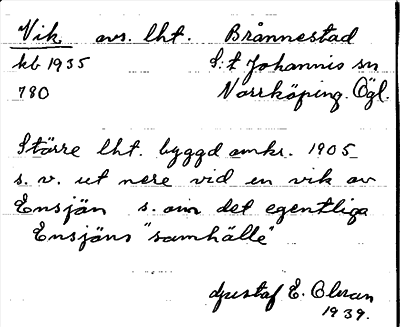 Vik avs. lht. Brånnestad
kb 1935 S:t Johannis sn
780 Norrköping. Ögl.
Större lht. byggd omkr. 1905
s. v. ut nere vid en vik av
Ensjön s. om det egentliga
Ensjöns "samhälle"
Gustaf E.
1939.